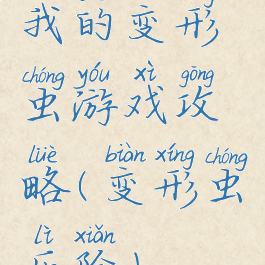 我的变形
chóng yóu xì gōng
虫游戏攻
lüè biàn xíng chóng
略(变形虫
lì xiǎn
历险)